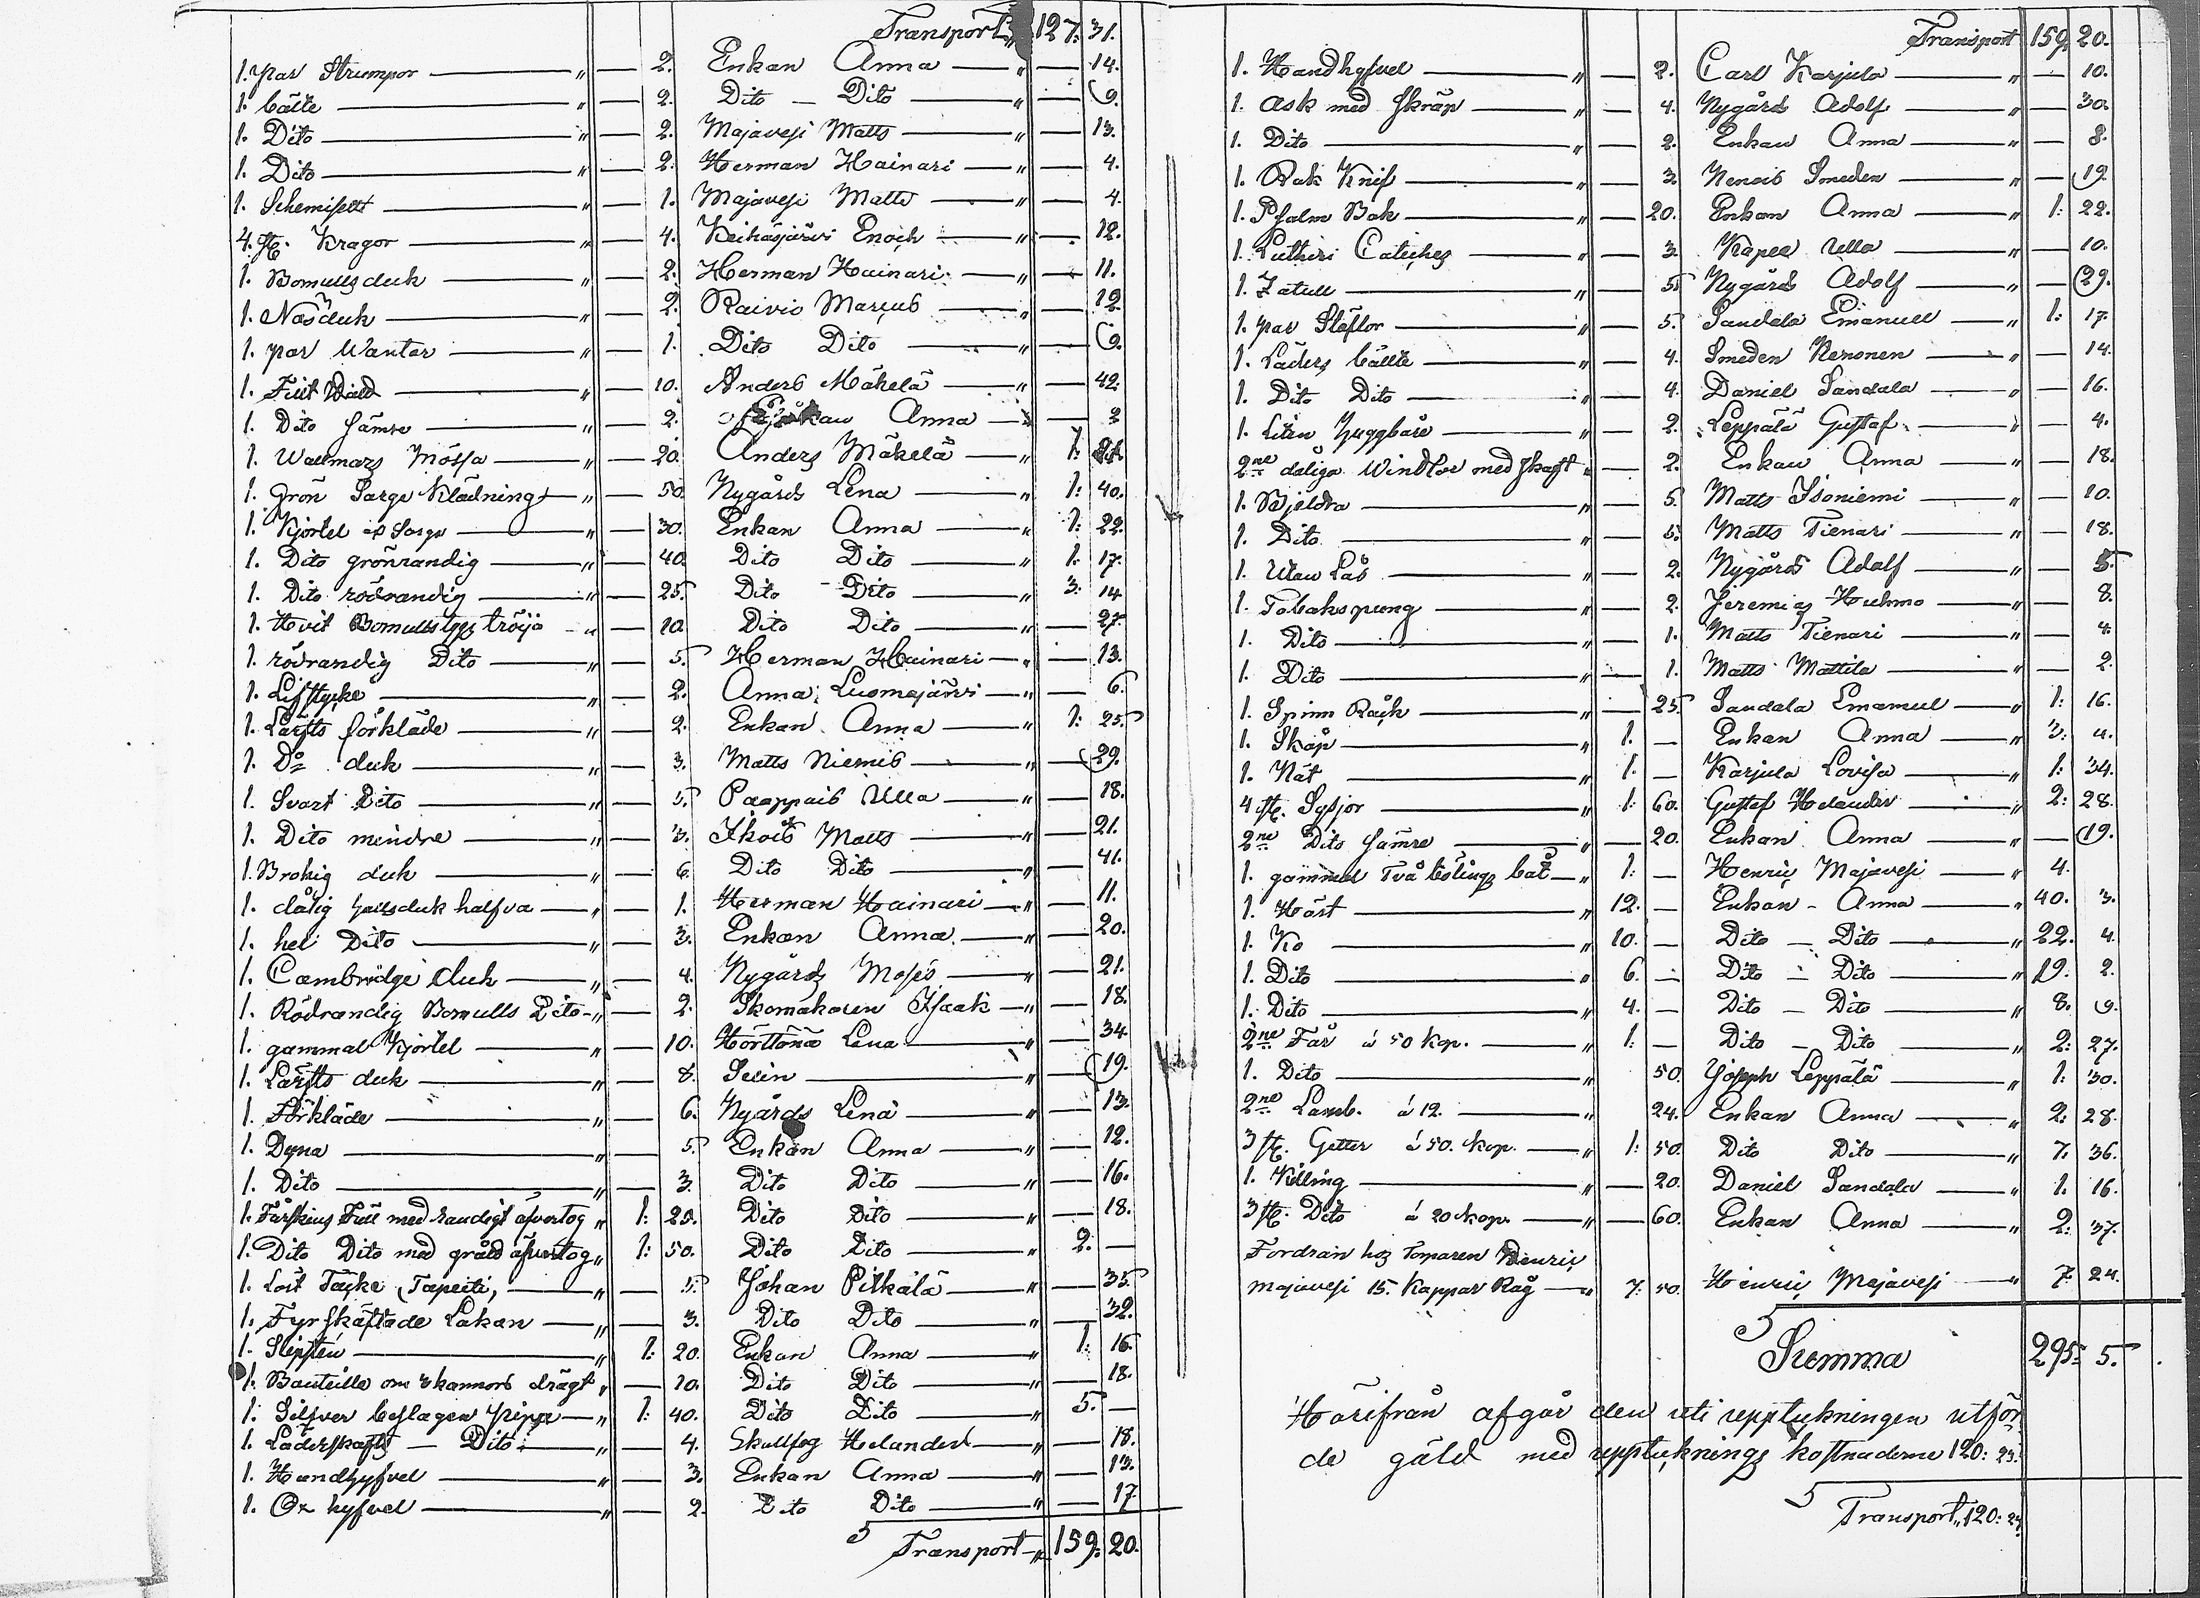 Transport 127: 31.
1. par Strumpor " — 2. Enkan Anna " — 14.
1. bälte " — 2. Dito — Dito " — 9.
1. Dito " — 2. Majavesi Matts " — 13.
1. Dito " — 2. Herman Hainari " — 4.
1. Schemisett " — 1. Majavesi Matts " — 4.
4. st. Kragor " — 4. Keihäsjärvi Enoch " — 12.
1. Bomullsduk " — 2. Herman Hainari " — 11.
1. Näsduk " — 2. Raivio Marcus " — 12.
1. par Wantar " — 1. Dito Dito " — 9.
1. Filt " — 10. Anders Mäkelä " — 42.
1. Dito sämre " — 2. Enkan Anna "
1. Wallmars Mössa " — 20. Anders Mäkelä " 1:
1. grön Sarge Klädning " — 50. Nygårds Lena " 1: 40.
1. Kjortel af Sarge " — 30. Enkan Anna " 1: 22.
1. Dito grönrandig " — 40. Dito Dito " 1: 17.
1. Dito rödrandig " — 25. Dito Dito " 3: 14
1. Hvit Bomullstygs tröija " — 10. Dito Dito " — 27.
1. rödrandig Dito " — 5. Herman Hainari " — 13.
1. Lifstycke " — 2. Anna Luomajärvi " — 6.
1. Lärfts förkläde " — 2. Enkan Anna " 1: 25.
1. Do duk " — 3. Matts Niemis " — 29.
1. Svart Dito " — 5. Paappais Ulla " — 18.
1. Dito mindre " — 3. Ikois Matts " — 21.
1. Brokig duk " — 6. Dito Dito " — 41.
1. dålig halsduk halfva " — 1. Herman Hainari " — 11.
1. hel Dito " — 3. Enkan Anna " — 20.
1. Cambridge duk " — 4. Nygårds Moses " — 21.
1. Rödrandig Bomulls Dito " — 2. Skomakaren Isaak " — 18.
1. gammal Kjortel " — 10. Hörttönä Lena " — 34
1. Lärfts duk " — 8. " — 19.
1. Förkläde " — 6. Nyårds Lena " — 13.
1. Dyna " — 5. Enkan Anna " — 12.
1. Dito " — 3. Dito Dito " — 16.
1. Fårskins Fäll med randigt åfvertog " 1: 25. Dito Dito " — 18.
1. Dito Dito med grått åfvertog " 1: 50. Dito Dito " 2. —
1. Löst Täcke (Tapeiti) " — 5. Johan Pitkälä " — 35.
1. Fyrskäftade Lakan " — 3. Dito Dito " — 32.
1. Slipsten " 1: 20. Enkan Anna " 1: 16.
1. Bouteille om kannors drägt " — 10. Dito Dito " — 18.
1. Silfver beslagen pipa " 1: 40. Dito Dito " 5. —
1. Läderskafts — Dito " — 4. Skallfog Helander " — 18.
1. Handhyfvel " — 3. Enkan Anna " — 13.
1. Ox hyfvel " — 2. Dito Dito " — 17.
Transport " 159: 20.
Transport 159: 20.
1. Handhyfvel " — 2. Carl Karjula " — 10.
1. ask med skräp " — 4. Nygårds Adolf " — 30.
1. Dito " — 2. Enkan Anna " — 8.
1. Rak Knif " — 3. Nenois Smeden " — 19.
1. Psalm Bok " — 20. Enkan Anna " 1: 22.
1. Lutheri Catiches " — 3. Kapee Ulla " — 10.
1. " — 5. Nygårds Adolf " — 29.
1. par Stöflor " — 5. Sandala Emanuel " 1: 17.
1. Läders bälte " — 4. Smeden Nenonen " — 14.
1. Dito Dito " — 4. Daniel Sandala " — 16.
1. Liten " — 2. Leppälä Gustaf " — 4.
2ne dåliga Windlor med skaft " — 2. Enkan Anna " — 18.
1. Bjeldra " — 5. Matts Isoniemi " — 10.
1. Dito " — 5. Matts Tienari " — 18.
1. Utan Lås " — 2. Nygårds Adolf " — 5.
1. Tobakspung " — 2. Jeremias Huhmo " — 8.
1. Dito " — 1. Matts Tienari " — 4.
1. Dito " — 1. Matts Mattila " — 2.
1. Spinn Råck " — 25. Sandala Emanuel " 1: 16.
1. Skåp " 1. — Enkan Anna " 3: 4.
1. Nät " 1. — Karjula Lovisa " 1: 34.
4 st. Sysjor " 1: 60. Gustaf Helander " 2: 28.
2ne Dito sämre " — 20. Enkan Anna " — 19.
1. gammal Två bölings båt " 1: — Henric Majavesi " 4.
1. Häst " 12. — Enkan Anna " 40. 3.
1. Ko " 10. — Dito — Dito " 22. 4.
1. Dito " 6. — Dito — Dito " 19. 2.
1. Dito " 4. — Dito — Dito " 8. 9.
2ne Får á 50 kop. " 1: — Dito — Dito " 2: 27.
1. Dito " 50. Joseph Leppälä " 1: 30.
2ne Lamb. á 12. " 24. Enkan Anna " 2: 28.
3 st. Getter á 50. kop. " 1: 50. Dito Dito " 7. 36.
1. Killing " — 20. Daniel Sandala " 1. 16.
3 st. Dito á 20 kop. " — 60. Enkan Anna " 2: 37.
Fordran hos Torparen Henric
majavesi 15. Kappar Råg " 7: 50. Henric Majavesi " 7. 24.
Summa 295: 5.
Härifrån afgår den uti uppteckningen utför-
de gäld med upptecknings kostnaderne 120: 23.
Transport " 120: 23.